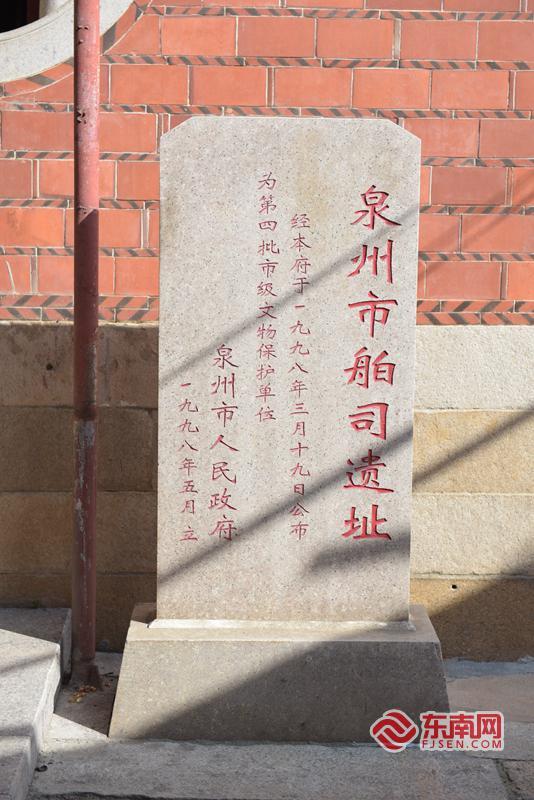 泉州市舶司遗址
经本府于一九九八年三月十九日公布
为第四批市级文物保护单位
泉州市人民政府
一九九八年五月立
东南网
FJSEN.COM